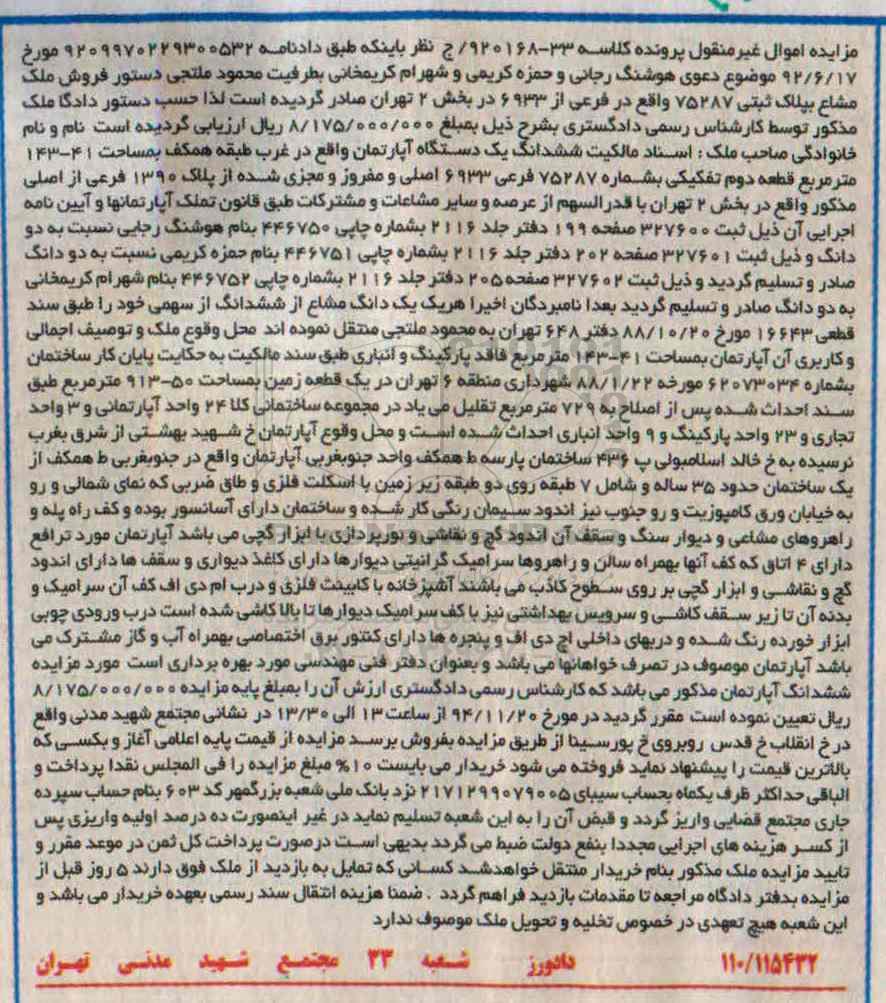 مزایده اموال غیرمنقول پرونده کلاسه ۳۳-۹۲۰۱۶۸/ ج نظر باینکه طبق دادنامه ۹۲۰۹۹۷۰۲۲۹۳۰۰۵۳۲ مورخ
۹۲/۶/۱۷ موضوع دعوی هوشنگ رجائی و حمزه کریمی و شهرام کریمخانی بطرفیت محمود ملتجی دستور فروش ملک
مشاع بپلاک ثبتی ۷۵۲۸۷ واقع در فرعی از ۶۹۳۳ در بخش ۲ تهران صادر گردیده است لذا حسب دستور دادگا ملک
مذکور توسط کارشناس رسمی دادگستری بشرح ذیل بمبلغ ۸/۱۷۵/۰۰۰/۰۰۰ ریال ارزیابی گردیده است نام و نام
خانوادگی صاحب ملک : اسناد مالکیت ششدانگ یک دستگاه آپارتمان واقع در غرب طبقه همکف بمساحت ۴۱-۱۴۳
مترمربع قطعه دوم تفکیکی بشماره ۷۵۲۸۷ فرعی ۶۹۳۳ اصلی و مفروز و مجزی شده از پلاک ۱۳۹۰ فرعی از اصلی
مذکور واقع در بخش ۲ تهران با قدرالسهم از عرصه و سایر مشاعات و مشترکات طبق قانون تملک آپارتمانها و آیین نامه
اجرایی آن ذیل ثبت ۳۲۷۶۰۰ صفحه ۱۹۹ دفتر جلد ۲۱۱۶ بشماره چاپی ۴۴۶۷۵۰ بنام هوشنگ رجایی نسبت به دو
دانگ و ذیل ثبت ۳۲۷۶۰۱ صفحه ۲۰۲ دفتر جلد ۲۱۱۶ بشماره چاپی ۴۴۶۷۵۱ بنام حمزه کریمی نسبت به دو دانگ
صادر و تسلیم گردید و ذیل ثبت ۳۲۷۶۰۲ صفحه ۲۰۵ دفتر جلد ۲۱۱۶ بشماره چاپی ۴۴۶۷۵۲ بنام شهرام کریمخانی
به دو دانگ صادر و تسلیم گردید بعدا نامبردگان اخیرا هریک یک دانگ مشاع از ششدانگ از سهمی خود را طبق سند
قطعی ۱۶۶۴۳ مورخ ۸۸/۱۰/۲۰ دفتر ۶۴۸ تهران به محمود ملتجی منتقل نموده اند محل وقوع ملک و توصیف اجمالی
و کاربری آن آپارتمان بمساحت ۴۱-۱۴۳ مترمربع فاقد پارکینگ و انباری طبق سند مالکیت به حکایت پایان کار ساختمان
بشماره ۶۲۰۷۳۰۳۴ مورخه ۸۸/۱/۲۲ شهرداری منطقه ۶ تهران در یک قطعه زمین بمساحت ۵۰-۹۱۳ مترمربع طبق
سند احداث شده پس از اصلاح به ۷۲۹ مترمربع تقلیل می یاد در مجموعه ساختمانی کلا ۲۴ واحد آپارتمانی و ۳ واحد
تجاری و ۲۳ واحد پارکینگ و ۹ واحد انباری احداث شده است و محل وقوع آپارتمان خ شهید بهشتی از شرق بغرب
نرسیده به خ خالد اسلامبولی پ ۴۳۶ ساختمان پارسه ط همکف واحد جنوبغربی آپارتمان واقع در جنوبغربی ط همکف از
یک ساختمان حدود ۳۵ ساله و شامل ۷ طبقه روی دو طبقه زیر زمین با اسکلت فلزی و طاق ضربی که نمای شمالی و رو
به خیابان ورق کامپوزیت و رو جنوب نیز اندود سیمان رنگی کار شده و ساختمان دارای آسانسور بوده و کف راه پله و
راهروهای مشاعی و دیوار سنگ و سقف آن اندود گچ و نقاشی و نورپردازی با ابزار گچی می باشد آپارتمان مورد ترافع
دارای ۴ اتاق که کف آنها بهمراه سالن و راهروها سرامیک گرانیتی دیوارها دارای کاغذ دیواری و سقف ها دارای اندود
گچ و نقاشی و ابزار گچی بر روی سطوح کاذب می باشند آشپزخانه با کابینت فلزی و درب ام دی اف کف آن سرامیک و
بدنه آن تا زیر سقف کاشی و سرویس بهداشتی نیز با کف سرامیک دیوارها تا بالا کاشی شده است درب ورودی چوبی
ابزار خورده رنگ شده و دربهای داخلی اچ دی اف و پنجره ها دارای کنتور برق اختصاصی بهمراه آب و گاز مشترک می
باشد آپارتمان موصوف در تصرف خواهانها می باشد و بعنوان دفتر فنی مهندسی مورد بهره برداری است مورد مزایده
ششدانگ آپارتمان مذکور می باشد که کارشناس رسمی دادگستری ارزش آن را بمبلغ پایه مزایده ۸/۱۷۵/۰۰۰/۰۰۰
ریال تعیین نموده است مقرر گردید در مورخ ۹۴/۱۱/۲۰ از ساعت ۱۳ الی ۱۳/۳۰ در نشانی مجتمع شهید مدنی واقع
در خ انقلاب خ قدس روبروی خ پورسینا از طریق مزایده بفروش برسد مزایده از قیمت پایه اعلامی آغاز و بکسی که
بالاترین قیمت را پیشنهاد نماید فروخته می شود خریدار می بایست ۱۰% مبلغ مزایده را فی المجلس نقدا پرداخت و
الباقی حداکثر ظرف یکماه بحساب سیبای ۲۱۷۱۲۹۹۰۷۹۰۰۵ نزد بانک ملی شعبه بزرگمهر کد ۶۰۳ بنام حساب سپرده
جاری مجتمع قضایی واریز گردد و قبض آن را به این شعبه تسلیم نماید در غیر اینصورت ده درصد اولیه واریزی پس
از کسر هزینه های اجرایی مجددا بنفع دولت ضبط می گردد بدیهی است درصورت پرداخت کل ثمن در موعد مقرر و
تایید مزایده ملک مذکور بنام خریدار منتقل خواهدشد کسانی که تمایل به بازدید از ملک فوق دارند ۵ روز قبل از
مزایده بدفتر دادگاه مراجعه تا مقدمات بازدید فراهم گردد . ضمنا هزینه انتقال سند رسمی بعهده خریدار می باشد و
این شعبه هیچ تعهدی در خصوص تخلیه و تحویل ملک موصوف ندارد
۱۱۰/۱۱۵۴۳۲ دادورز شعبه ۳۳ مجتمع شهید مدنی تهران